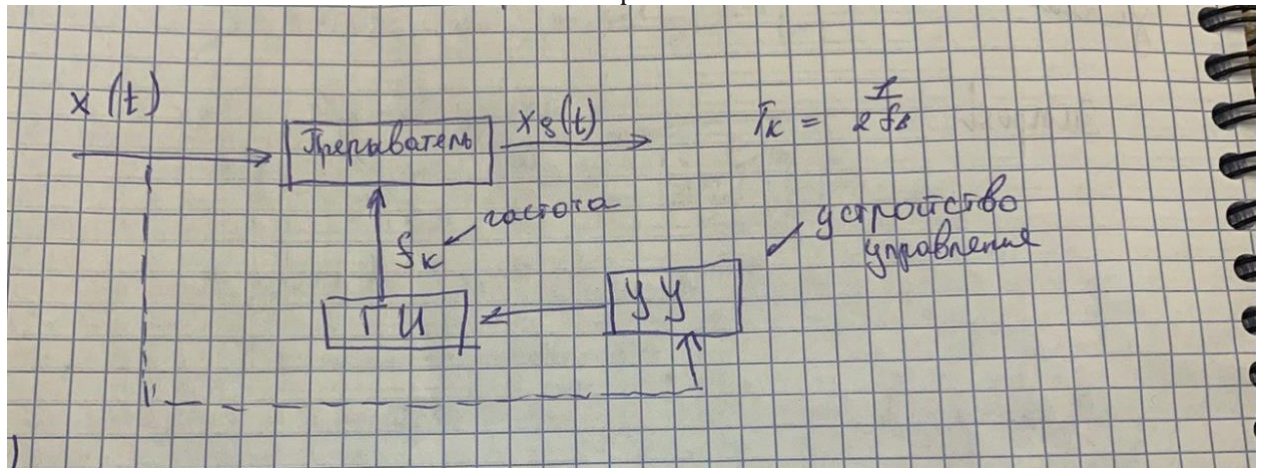 x (t)
Прерыватель
x₈(t)
Tк = 1/2fв
fк
частота
устройство
управления
ГИ
УУ